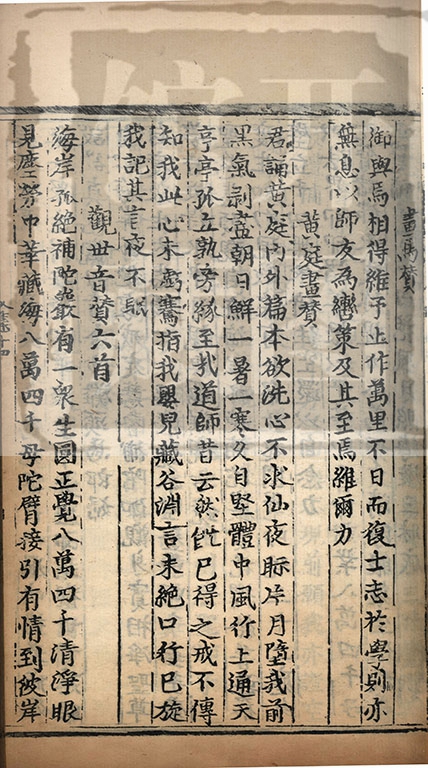 畫馬贊
御輿馬相得維予止作萬里不日而復士志於學則亦
無息以師友為轡策及其至焉維爾力
黃庭畫贊
君誦黃庭內外篇本欲洗心不求仙夜眎片月墮我前
黑氣剥盡朝日鮮一暑一寒久自堅體中風行上通天
亭亭孤立孰旁緣至哉道師昔云然既已得之戒不傳
知我此心未虧騫指我嬰兒藏谷淵言未絕口行已旋
我記其言夜不眠
觀世音贊六首
海岸孤絕補陀巖有一衆生圓正覺八萬四千清淨眼
見塵勞中華藏海八萬四千母陀臂接引有情到彼岸